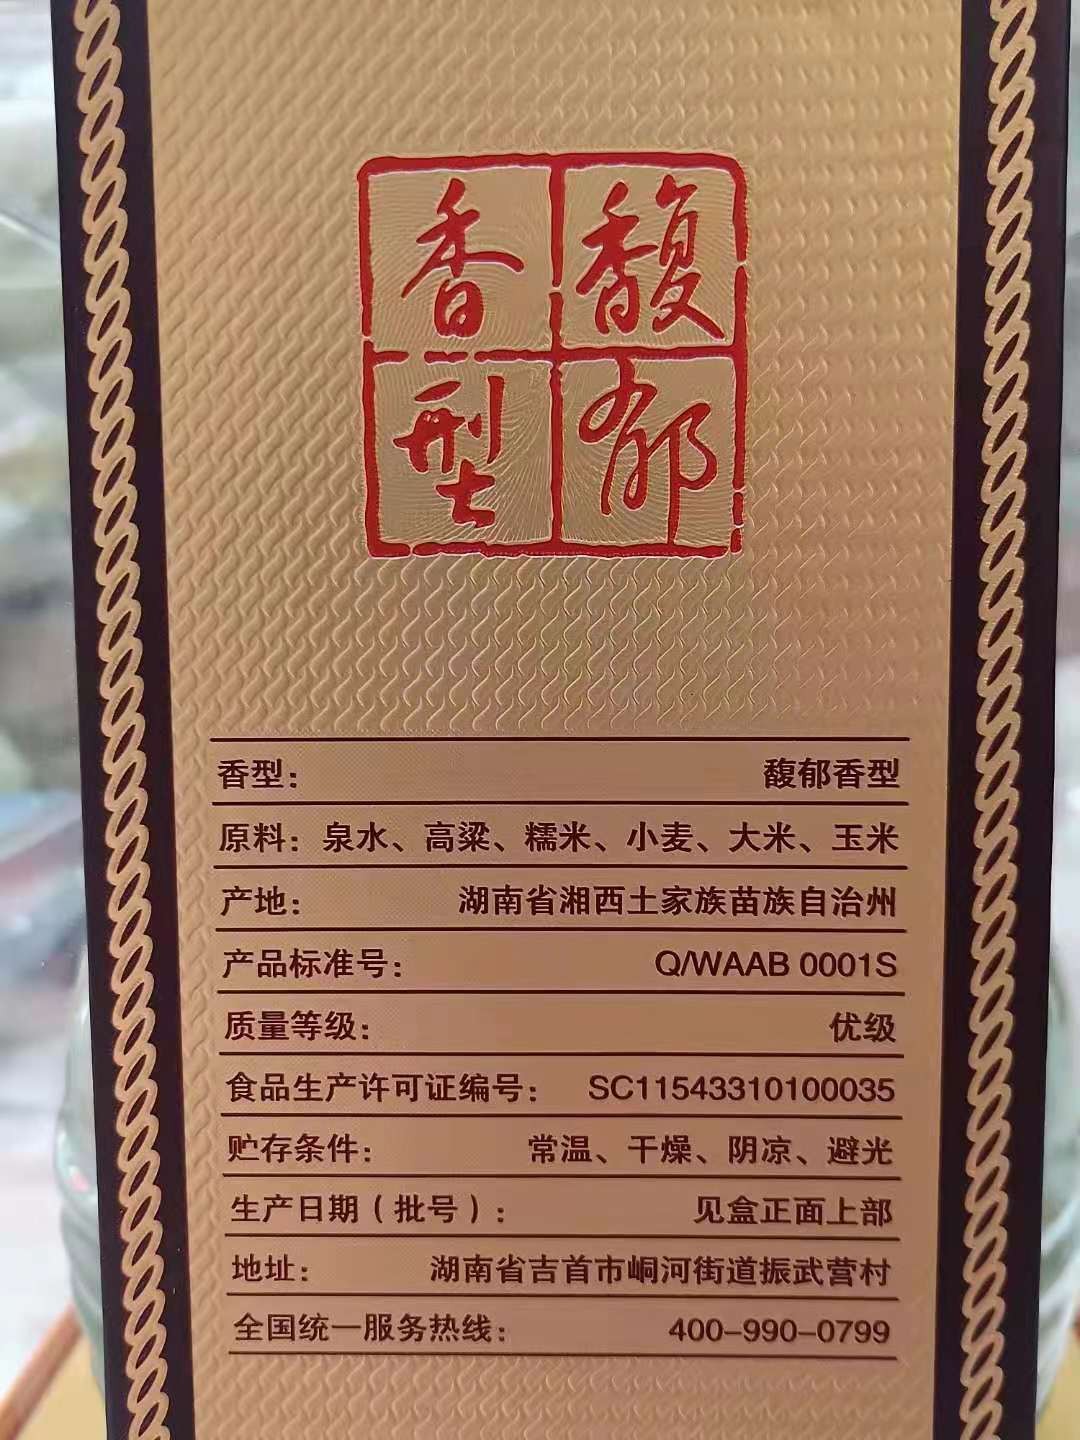 馥郁
香型
香型： 馥郁香型
原料：泉水、高粱、糯米、小麦、大米、玉米
产地： 湖南省湘西土家族苗族自治州
产品标准号： Q/WAAB 0001S
质量等级： 优级
食品生产许可证编号： SC11543310100035
贮存条件： 常温、干燥、阴凉、避光
生产日期（批号）： 见盒正面上部
地址： 湖南省吉首市峒河街道振武营村
全国统一服务热线： 400-990-0799